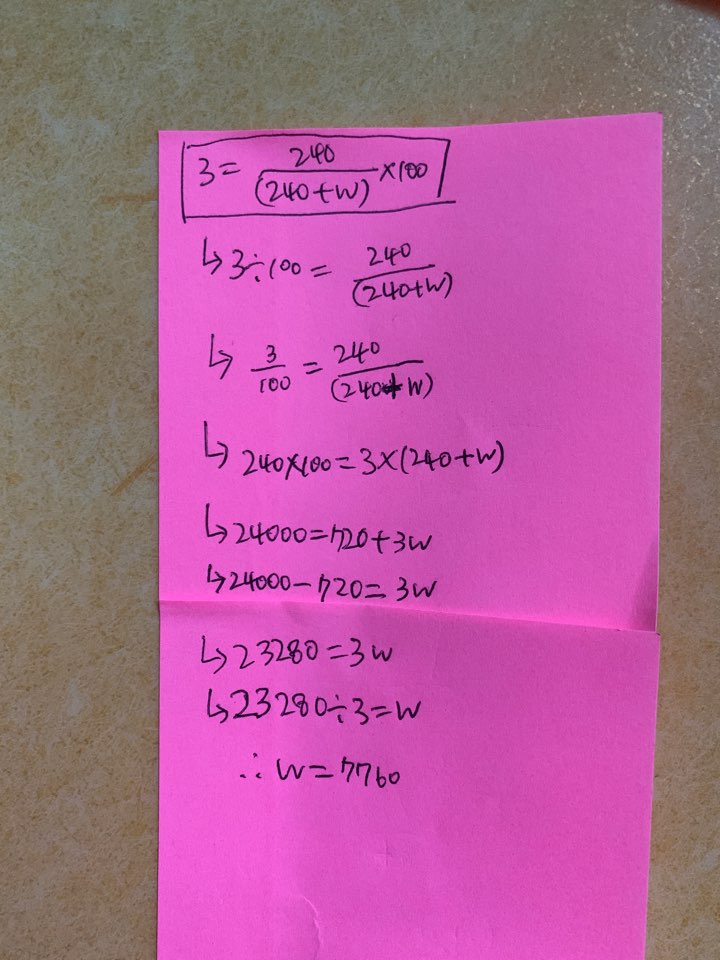 3 = 240/(240+W) ×100
↳ 3÷100 = 240/(240+W)
↳ 3/100 = 240/(240+W)
↳ 240×100=3×(240+W)
↳ 24000=720+3W
↳ 24000-720=3W
↳ 23280=3W
↳ 23280÷3=W
∴ W=7760